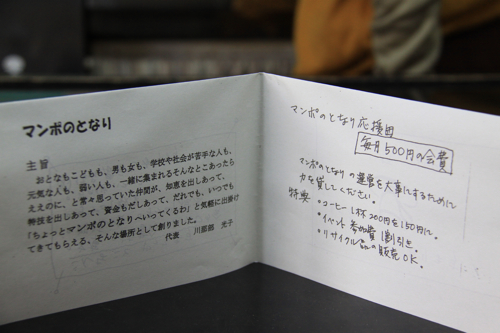 マンボのとなり
主旨
おとなもこどもも、男も女も、学校や社会が苦手な人も、
元気な人も、弱い人も、一緒に集まれるそんなとこあったら
ええのに、と常々思っていた仲間が、知恵を出しあって、
特技を出しあって、資金もだしあって、だれでも、いつでも
「ちょっとマンボのとなりへいってくるわ」と気軽に出掛け
てきてもらえる、そんな場所として創りました。
代表 川那部 光子
マンボのとなり応援団
毎月500円の会費
マンボのとなりの運営を大事にするために
力を貸してください。
特典 ・コーヒー1杯200円を150円に。
・イベント参加費1割引き。
・リサイクル品の販売OK。